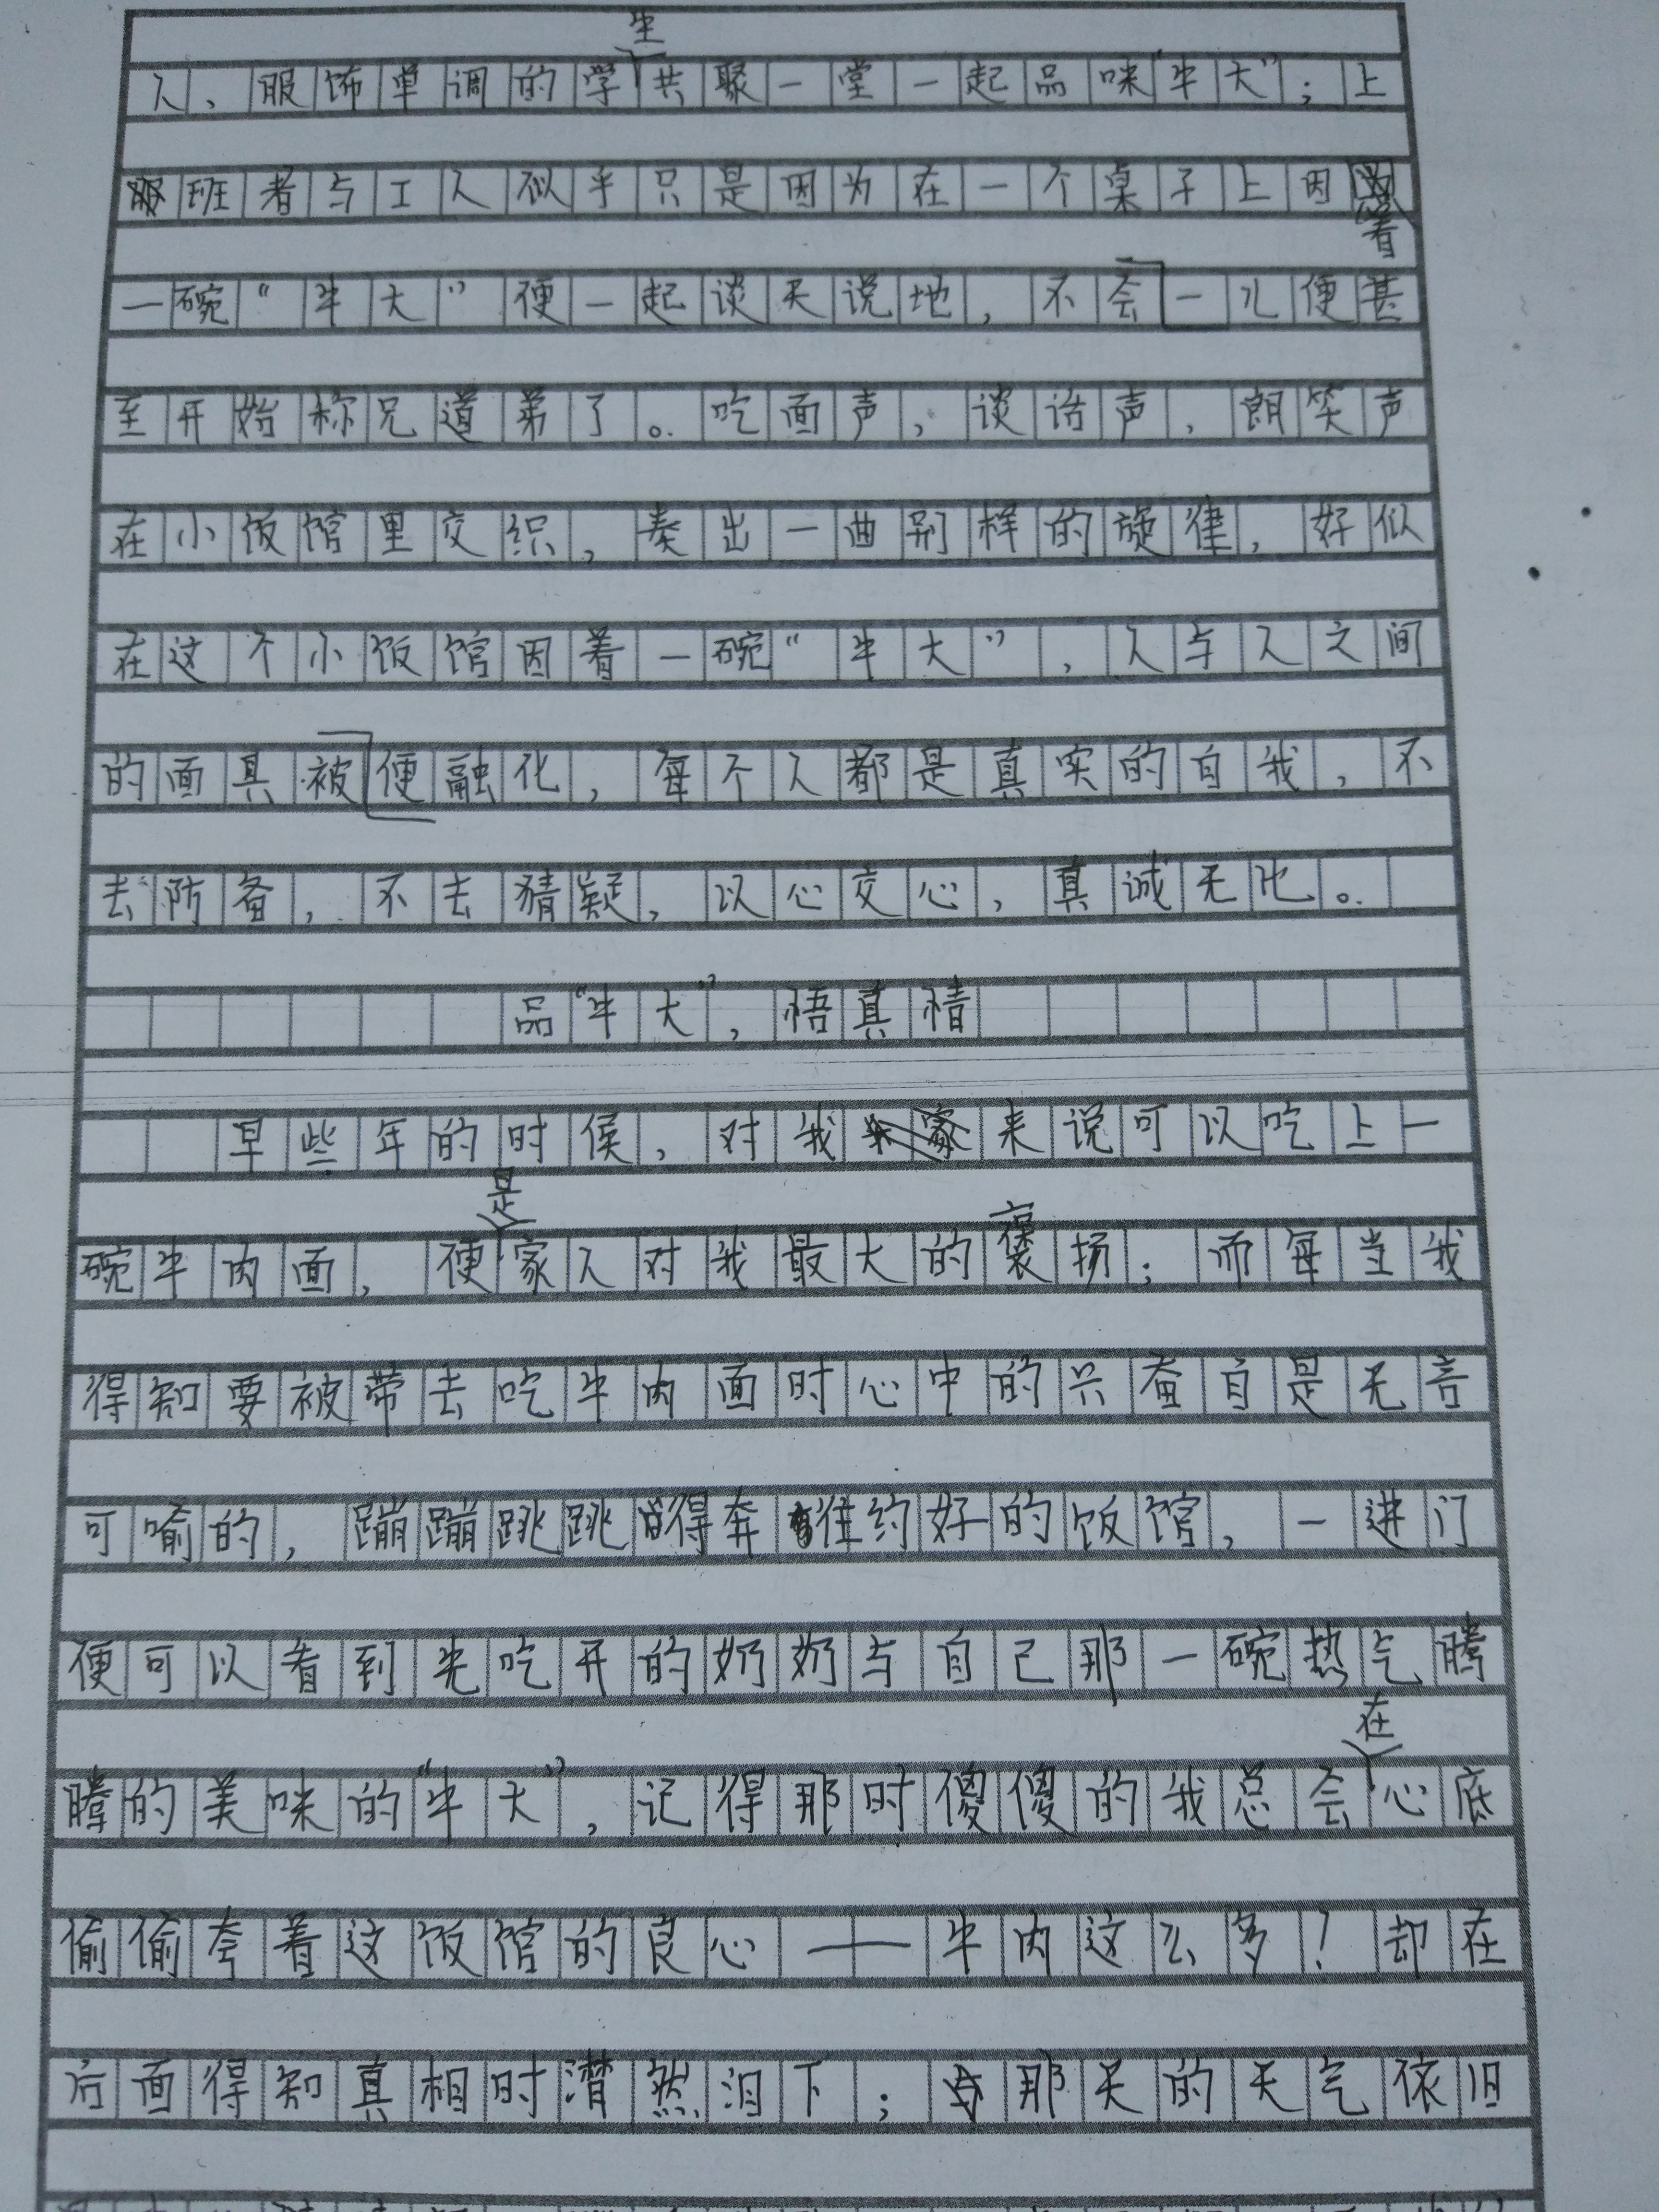 人、服饰单调的学生共聚一堂一起品味“牛大”；上
班者与工人似乎只是因为在一个桌子上因着
一碗“牛大”便一起谈天说地，不会一儿便甚
至开始称兄道弟了。吃面声，谈话声，朗笑声
在小饭馆里交织，奏出一曲别样的旋律，好似
在这个小饭馆因着一碗“牛大”，人与人之间
的面具被便融化，每个人都是真实的自我，不
去防备，不去猜疑，以心交心，真诚无比。
品“牛大”，悟真情
早些年的时候，对我来说可以吃上一
碗牛肉面，便是家人对我最大的褒扬；而每当我
得知要被带去吃牛肉面时心中的兴奋自是无言
可喻的，蹦蹦跳跳得奔往约好的饭馆，一进门
便可以看到先吃开的奶奶与自己那一碗热气腾
腾的美味的“牛大”，记得那时傻傻的我总会在心底
偷偷夸着这饭馆的良心——牛肉这么多！却在
后面得知真相时潸然泪下；那天的天气依旧